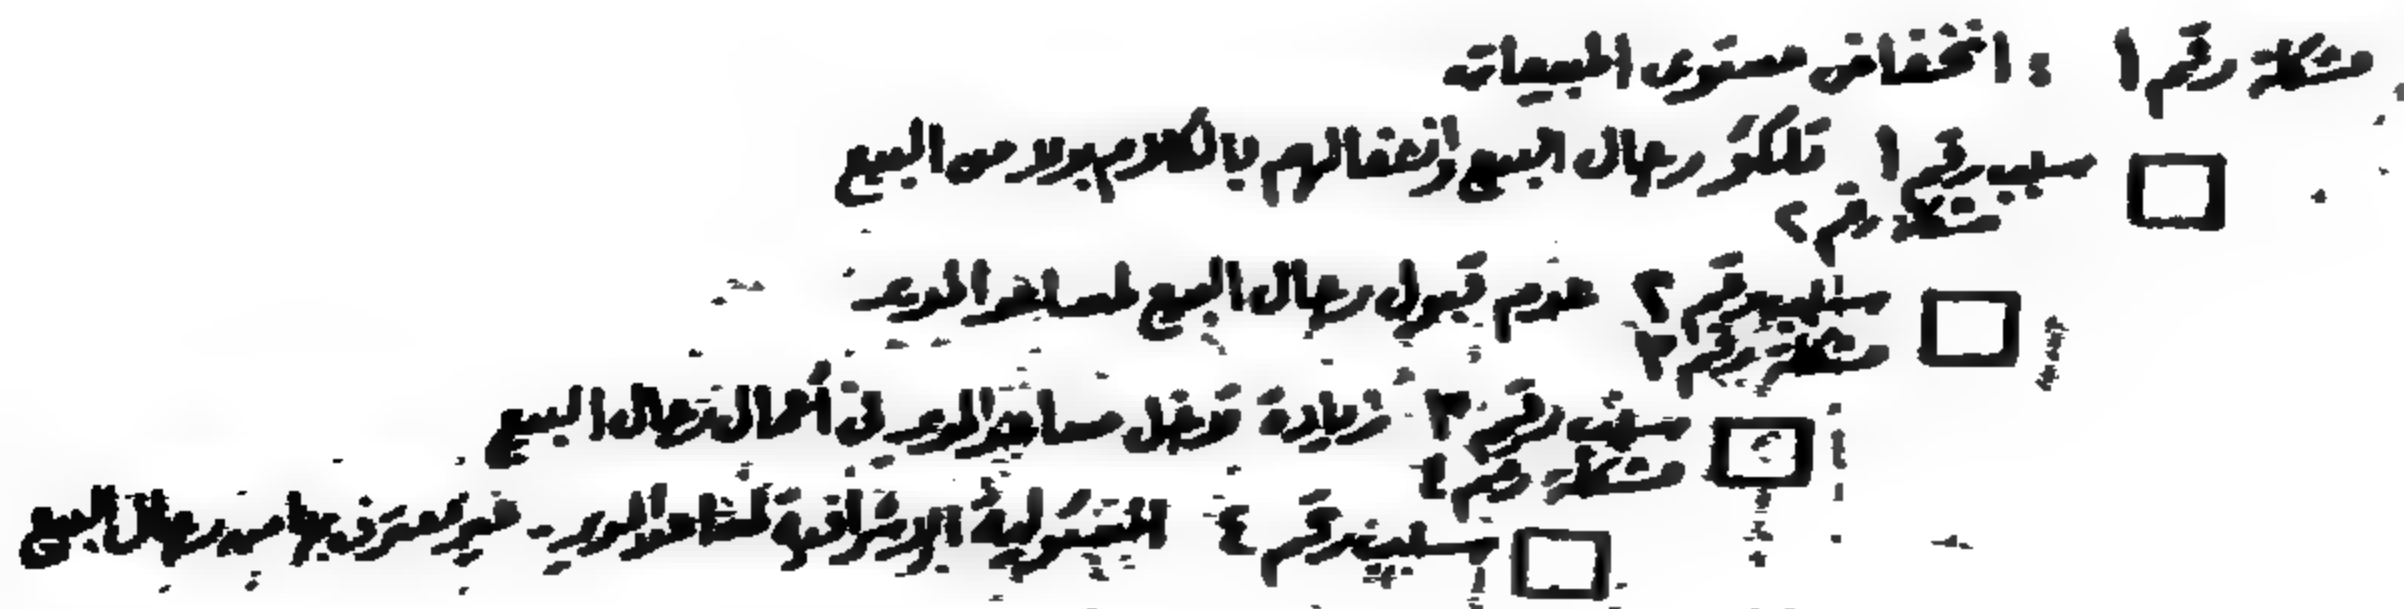 مشكلة رقم ١ : انخفاض مستوى المبيعات
سبب رقم ١ تلكؤ رجال البيع وانشغالهم بالكلام بدلا من البيع
مشكلة رقم ٢
سبب رقم ٢ عدم قبول رجال البيع لمساعد المدير
مشكلة رقم ٣
سبب رقم ٣ زيادة تدخل مساعد المدير في أعمال رجال البيع
مشكلة رقم ٤
سبب رقم ٤ المسئولية الإشرافية لمساعد المدير غير معترف بها من رجال البيع